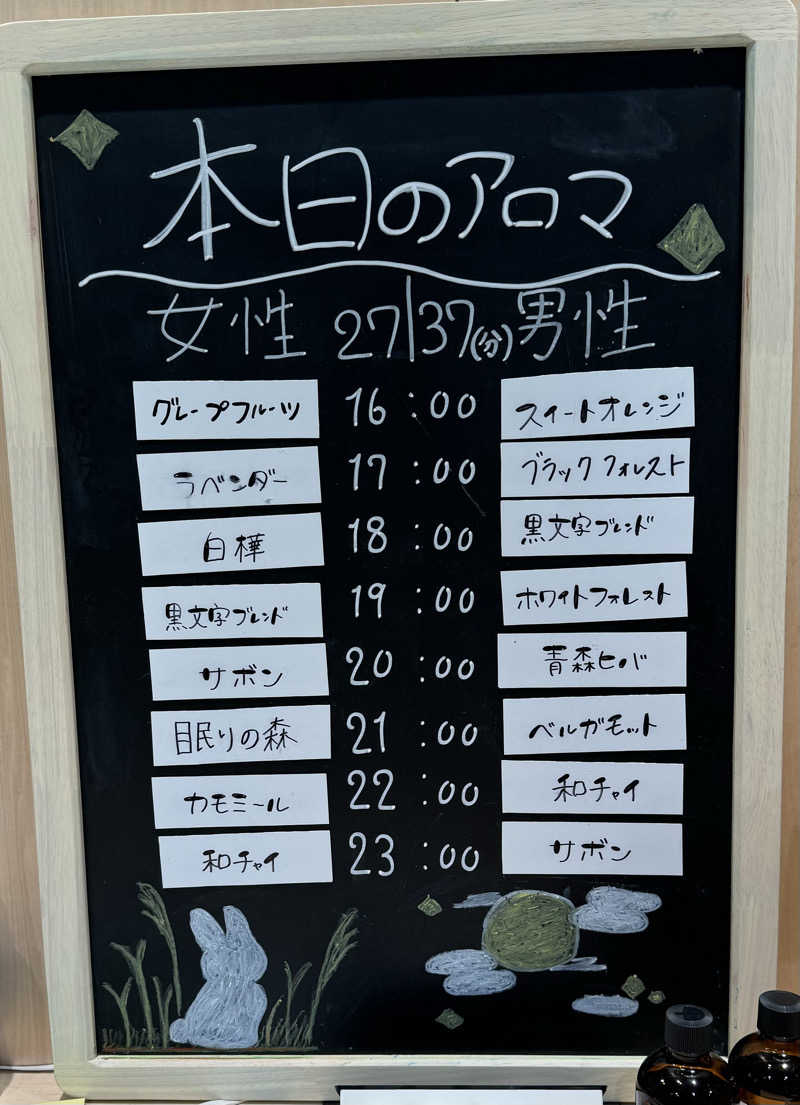 本日のアロマ
女性 27/37(分) 男性
グレープフルーツ 16:00 スイートオレンジ
ラベンダー 17:00 ブラックフォレスト
白樺 18:00 黒文字ブレンド
黒文字ブレンド 19:00 ホワイトフォレスト
サボン 20:00 青森ヒバ
眠りの森 21:00 ベルガモット
カモミール 22:00 和チャイ
和チャイ 23:00 サボン